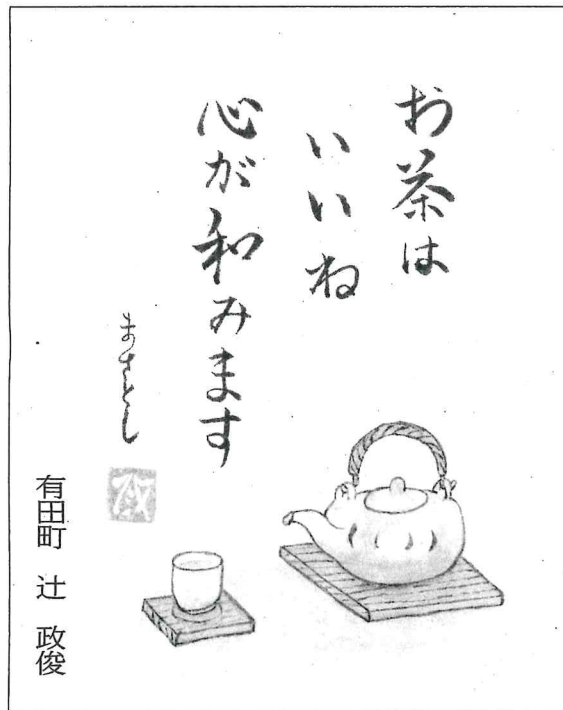 お茶は
いいね
心が和みます
まさとし
有田町 辻 政俊